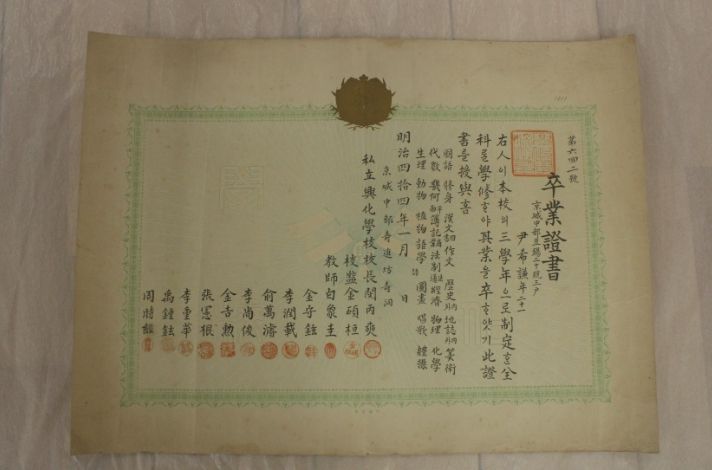 第六四二號
卒業證書
尹希謙年二十一
右人이本校의三學年으로制定ᄒᆞᆫ全
科ᄅᆞᆯ學修ᄒᆞ야其業을卒ᄒᆞ얏기此證
書ᄅᆞᆯ授與喜
國語 修身 漢文 作文 歷史 地誌 算術
代數 幾何 簿記 法制 經濟 物理 化學
生理 動物 植物 語學 圖畫 唱歌 體操
明治四拾四年一月 日
京城中部壽進坊壽洞
私立興化學校校長閔丙奭
校監金碩桓
教師白象圭
金守鍾
李潤載
兪萬濬
李尚俊
金吉勲
張憲根
李重華
禹鍾鉉
周時經